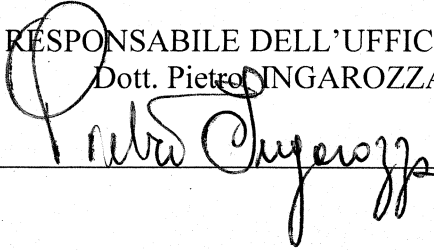 RESPONSABILE DELL'UFFIC
Dott. Pietro INGAROZZA
Pietro Ingarozza